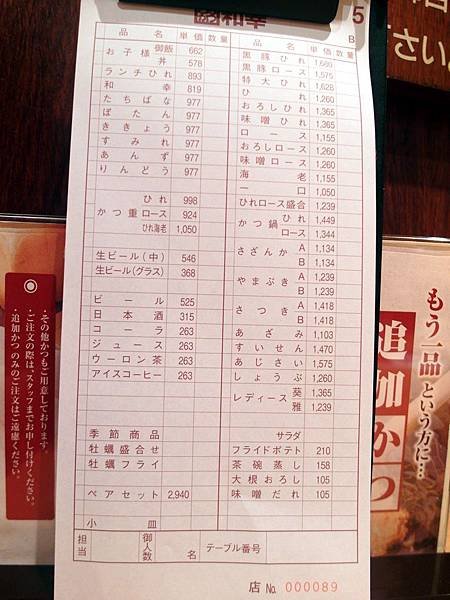 和幸
5
B
品名 単価 数量
お子様御飯 662
丼 578
ランチひれ 893
和幸 819
たちばな 977
ぼたん 977
ききょう 977
すみれ 977
あんず 977
りんどう 977
ひれ 998
かつ重ロース 924
ひれ海老 1,050
生ビール(中) 546
生ビール(グラス) 368
ビール 525
日本酒 315
コーラ 263
ジュース 263
ウーロン茶 263
アイスコーヒー 263
季節商品
牡蠣盛合せ
牡蠣フライ
ペアセット 2,940
小皿
品名 単価 数量
黒豚ひれ 1,680
黒豚ロース 1,575
特大ひれ 1,628
ひれ 1,260
おろしひれ 1,365
味噌ひれ 1,365
ロース 1,155
おろしロース 1,260
味噌ロース 1,260
海老 1,155
一口 1,050
ひれロース盛合 1,239
かつ鍋 ひれ 1,449
ロース 1,344
さざんか A 1,134
B 1,134
やまぶき A 1,239
B 1,239
さつき A 1,418
B 1,418
あざみ 1,103
すいせん 1,470
あじさい 1,575
しょうぶ 1,260
レディース 葵 1,365
雅 1,239
サラダ
フライドポテト 210
茶碗蒸し 158
大根おろし 105
味噌だれ 105
担当 御人数 名 テーブル番号
店 No. 000089
・その他かつもご用意しております。
・ご注文の際は、スタッフまでお申し付けください。
・追加かつのみのご注文はご遠慮ください。
さい。
もう一品という方に…
追加かつ